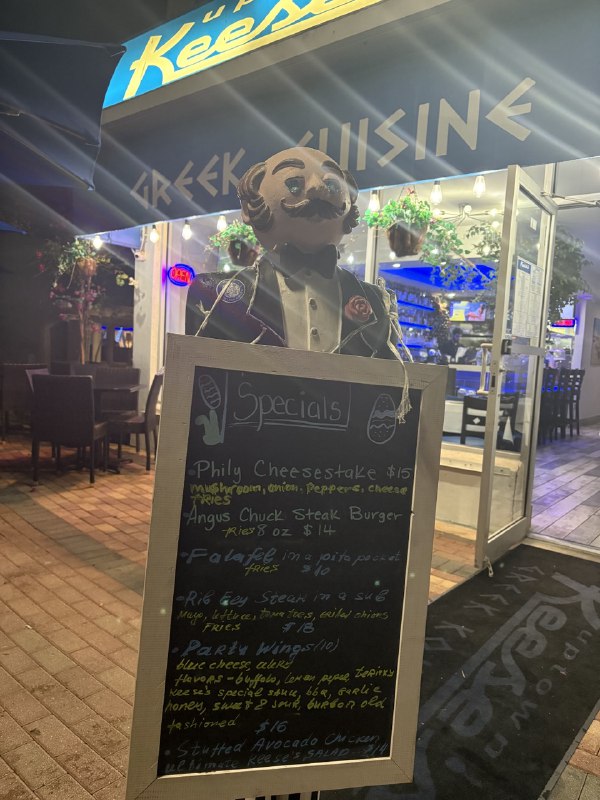 uptown
Keese
GREEK CUISINE
OPEN
Specials
•Phily Cheesestake $15
mushroom, onion, peppers, cheese
fries
Angus Chuck Steak Burger
fries 8 oz $14
•Falafel in a pita pocket
fries $10
•Rib Eey Steak in a sub
mayo, lettuce, tomatoes, grilled onions
Fries $18
•Party Wings (10)
blue cheese, celery
flavors - buffalo, lemon peper, teriaky
Keese's special saus, bbq, garlic
honey, sweet & sour, burbon old
fashioned $16
•Stuffed Avocado Chicken
ultimate Keese's SALAD $14
uptown
Keese
GREEK